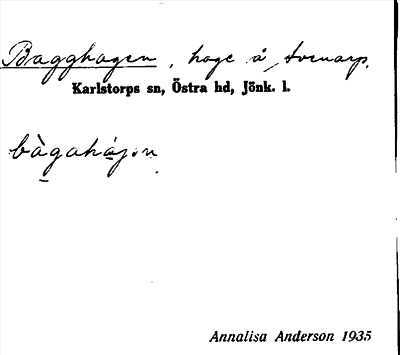 Bagghagen, hage å Svenarp.
Karlstorps sn, Östra hd, Jönk. l.
bàgahájən.
Annalisa Anderson 1935